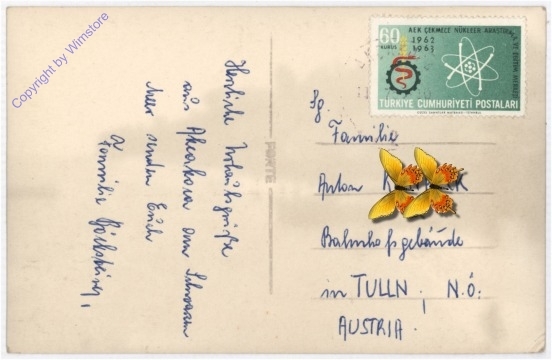 Copyright by Wimstore
Herzliche Urlaubsgrüße
aus Akcakoca am Schwarzen
Meer senden Euch
Familie
60
KURUS
AEK ÇEKMECE NÜKLEER ARAŞTIRMA VE EĞİTİM MERKEZİ
1962
1963
TÜRKİYE CUMHURİYETİ POSTALARI
Fam​ilie
Anton
Bahnhofgebäude
in TULLN, N.Ö.
AUSTRIA.